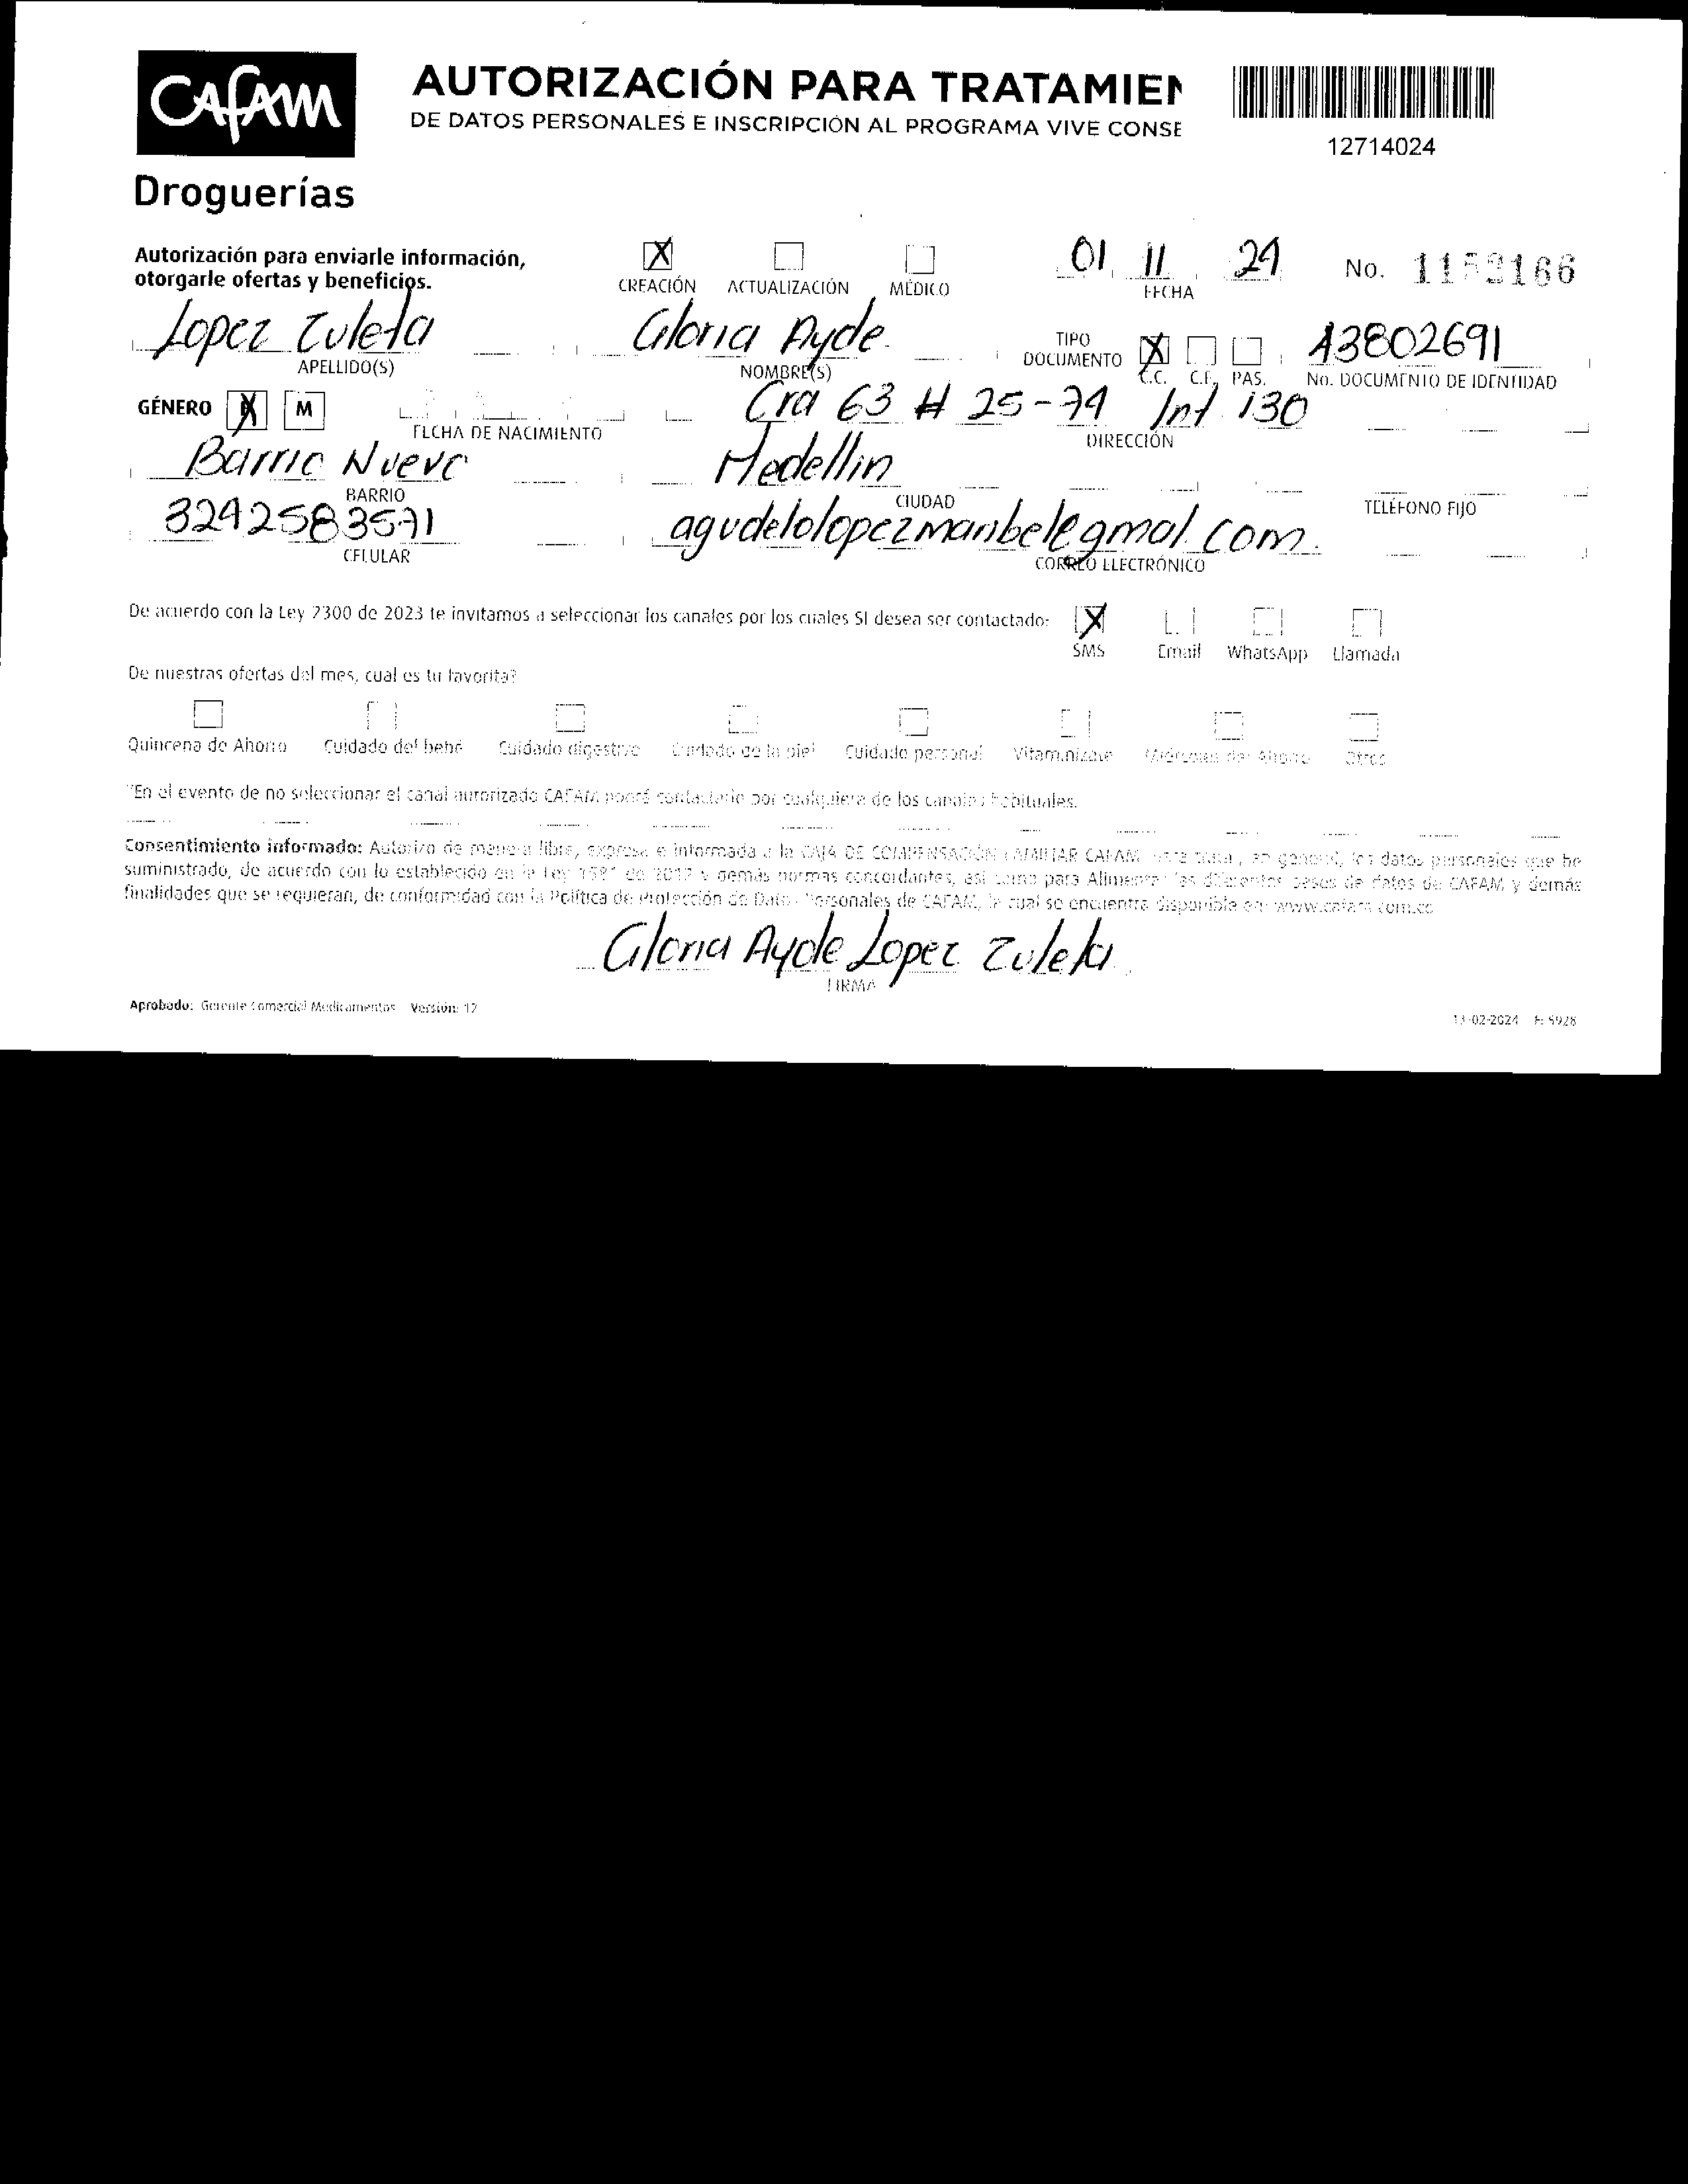 CAFAM
AUTORIZACIÓN PARA TRATAMIEN
DE DATOS PERSONALES E INSCRIPCIÓN AL PROGRAMA VIVE CONSE
12714024
Droguerías
Autorización para enviarle información,
otorgarle ofertas y beneficios.
X CREACIÓN ACTUALIZACIÓN MÉDICO
01 11 24
FECHA
No. 1152166
Lopez Zuleta
APELLIDO(S)
Gloria Ayde
NOMBRE(S)
TIPO DOCUMENTO X C.C. C.E. PAS.
43802691
No. DOCUMENTO DE IDENTIDAD
GÉNERO X M
FECHA DE NACIMIENTO
Cra 63 # 25-74 Int 130
DIRECCIÓN
Barrio Nuevo
BARRIO
Medellin
CIUDAD
TELÉFONO FIJO
3242583571
CELULAR
agudelolopezmaribel@gmal.com.
CORREO ELECTRÓNICO
De acuerdo con la Ley 2300 de 2023 te invitamos a seleccionar los canales por los cuales SI desea ser contactado:
X SMS Email WhatsApp Llamada
De nuestras ofertas del mes, cual es tu favorita?
Quincena de Ahorro Cuidado del bebé Cuidado digestivo Cuidado de la piel Cuidado personal Vitamínizate Miércoles del Ahorro Otros
*En el evento de no seleccionar el canal autorizado CAFAM podrá contactarlo por cualquiera de los canales habituales.
Consentimiento informado: Autorizo de manera libre, expresa e informada a la CAJA DE COMPENSACIÓN FAMILIAR CAFAM para tratar, en general, los datos personales que he
suministrado, de acuerdo con lo establecido en la Ley 1581 de 2012 y demás normas concordantes, así como para Alimentar las diferentes bases de datos de CAFAM y demás
finalidades que se requieran, de conformidad con la Política de Protección de Datos Personales de CAFAM, la cual se encuentra disponible en: www.cafam.com.co
Gloria Ayde Lopez Zuleta
FIRMA
Aprobado: Gerente Comercial Medicamentos Versión: 12
13-02-2024 F: 5928